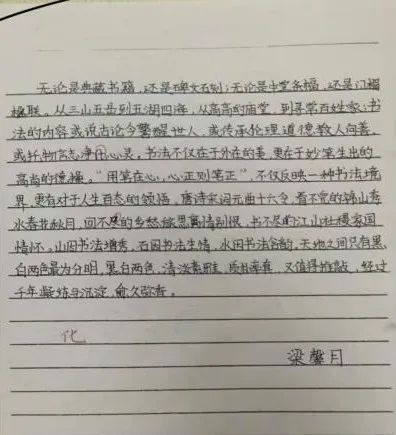 无论是典藏书籍，还是碑文石刻；无论是中堂条幅，还是门楣
楹联。从三山五岳到五湖四海，从高高的庙堂，到寻常百姓家；书
法的内容或说古论今警醒世人，或传承伦理道德教人向善，
或托物言志净用心灵。书法不仅在于外在的美，更在于妙笔生出的
高尚的德操。“用笔在心，心正则笔正”，不仅反映一种书法境
界，更有对于人生百态的领悟，唐诗宋词元曲十六令，看不完的锦山秀
水春花秋月，回不尽的乡愁旅思离情别恨，书不尽的江山社稷家国
情怀。山因书法增秀，石因书法生情，水因书法含韵，天地之间只有黑
白两色最为分明，黑白两色，清淡素雅，质朴率真，又值得推敲，经过
千年凝练与沉淀，愈久弥香。
化
梁馨月